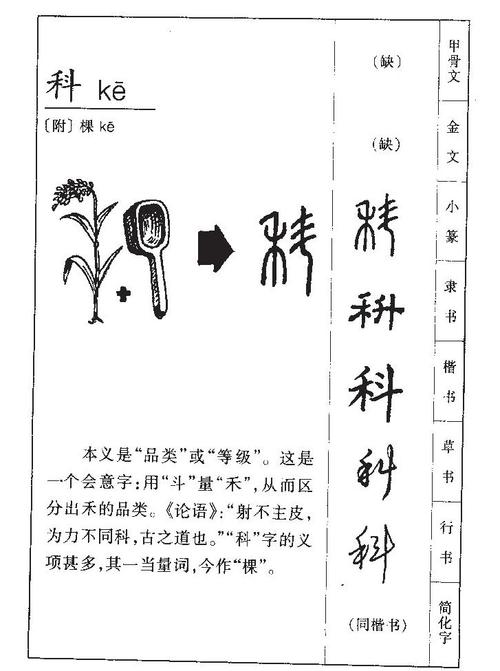 科 kē
〔附〕棵 kē
本义是“品类”或“等级”。这是
一个会意字：用“斗”量“禾”，从而区
分出禾的品类。《论语》：“射不主皮，
为力不同科，古之道也。”“科”字的义
项甚多，其一当量词，今作“棵”。
（缺）
甲骨文
（缺）
金文
科
小篆
科
隶书
科
楷书
科
草书
科
行书
（同楷书）
简化字